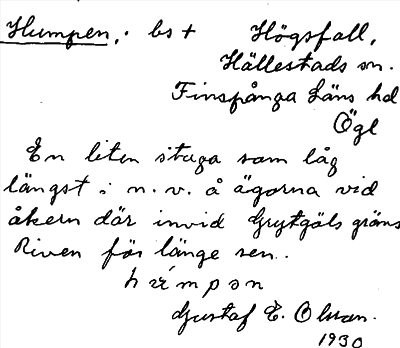 Humpen, . bs + Högsfall,
Hällestads sn.
Finspånga Läns hd
Ögl
En liten stuga som låg
längst i n. v. å ägorna vid
åkern där invid Grytgöls gräns
Riven för länge sen.
Gustaf E. Olsson.
1930